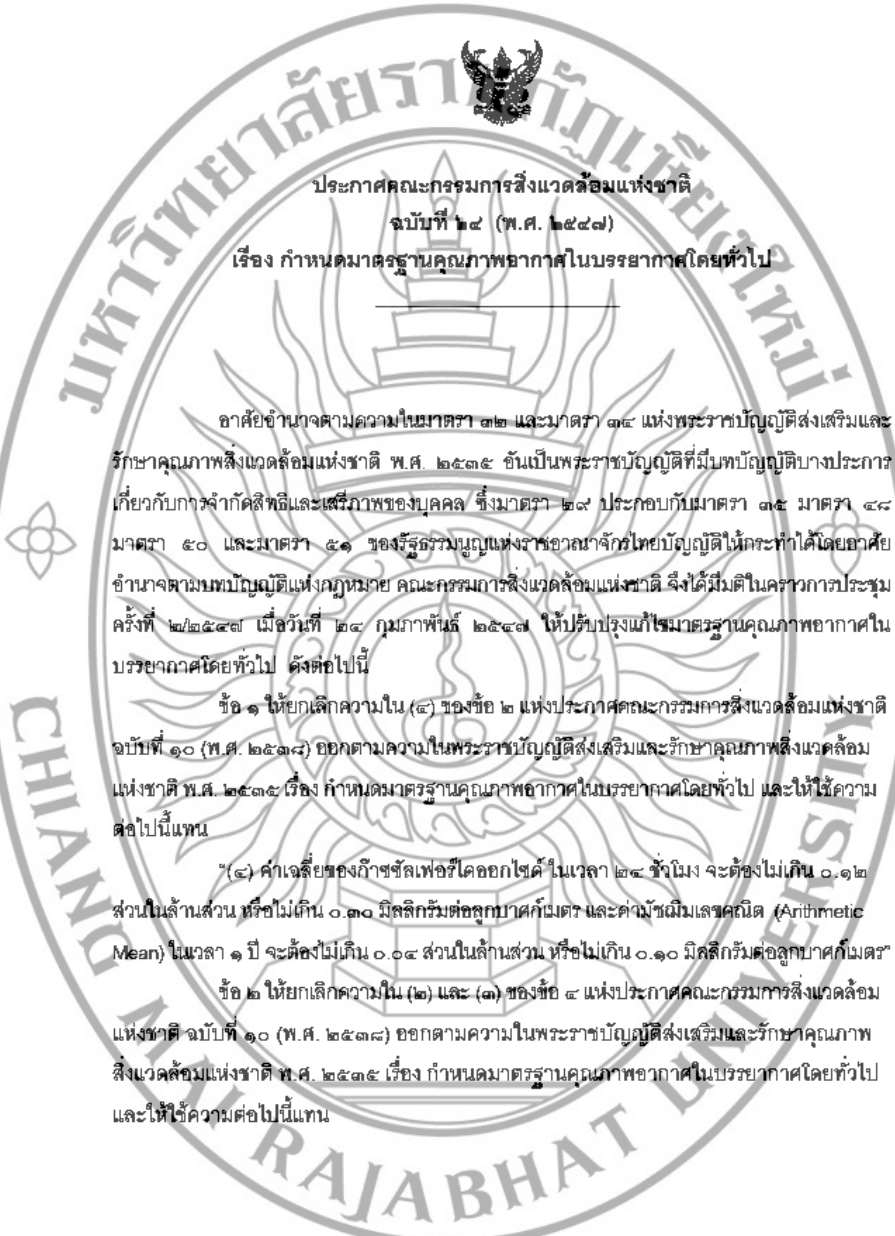 มหาวิทยาลัยราชภัฏเชียงใหม่
ประกาศคณะกรรมการสิ่งแวดล้อมแห่งชาติ
ฉบับที่ ๒๔ (พ.ศ. ๒๕๔๗)
เรื่อง กำหนดมาตรฐานคุณภาพอากาศในบรรยากาศโดยทั่วไป
อาศัยอำนาจตามความในมาตรา ๓๒ และมาตรา ๓๔ แห่งพระราชบัญญัติส่งเสริมและ
รักษาคุณภาพสิ่งแวดล้อมแห่งชาติ พ.ศ. ๒๕๓๕ อันเป็นพระราชบัญญัติที่มีบทบัญญัติบางประการ
เกี่ยวกับการจำกัดสิทธิและเสรีภาพของบุคคล ซึ่งมาตรา ๒๙ ประกอบกับมาตรา ๓๕ มาตรา ๔๘
มาตรา ๕๐ และมาตรา ๕๑ ของรัฐธรรมนูญแห่งราชอาณาจักรไทยบัญญัติให้กระทำได้โดยอาศัย
อำนาจตามบทบัญญัติแห่งกฎหมาย คณะกรรมการสิ่งแวดล้อมแห่งชาติ จึงได้มีมติในคราวการประชุม
ครั้งที่ ๒/๒๕๔๗ เมื่อวันที่ ๒๔ กุมภาพันธ์ ๒๕๔๗ ให้ปรับปรุงแก้ไขมาตรฐานคุณภาพอากาศใน
บรรยากาศโดยทั่วไป ดังต่อไปนี้
ข้อ ๑ ให้ยกเลิกความใน (๔) ของข้อ ๒ แห่งประกาศคณะกรรมการสิ่งแวดล้อมแห่งชาติ
ฉบับที่ ๑๐ (พ.ศ. ๒๕๓๘) ออกตามความในพระราชบัญญัติส่งเสริมและรักษาคุณภาพสิ่งแวดล้อม
แห่งชาติ พ.ศ. ๒๕๓๕ เรื่อง กำหนดมาตรฐานคุณภาพอากาศในบรรยากาศโดยทั่วไป และให้ใช้ความ
ต่อไปนี้แทน
"(๔) ค่าเฉลี่ยของก๊าซซัลเฟอร์ไดออกไซด์ ในเวลา ๒๔ ชั่วโมง จะต้องไม่เกิน ๐.๑๒
ส่วนในล้านส่วน หรือไม่เกิน ๐.๓๐ มิลลิกรัมต่อลูกบาศก์เมตร และค่ามัชฌิมเลขคณิต (Arithmetic
Mean) ในเวลา ๑ ปี จะต้องไม่เกิน ๐.๐๔ ส่วนในล้านส่วน หรือไม่เกิน ๐.๑๐ มิลลิกรัมต่อลูกบาศก์เมตร"
ข้อ ๒ ให้ยกเลิกความใน (๒) และ (๓) ของข้อ ๔ แห่งประกาศคณะกรรมการสิ่งแวดล้อม
แห่งชาติ ฉบับที่ ๑๐ (พ.ศ. ๒๕๓๘) ออกตามความในพระราชบัญญัติส่งเสริมและรักษาคุณภาพ
สิ่งแวดล้อมแห่งชาติ พ.ศ. ๒๕๓๕ เรื่อง กำหนดมาตรฐานคุณภาพอากาศในบรรยากาศโดยทั่วไป
และให้ใช้ความต่อไปนี้แทน
CHIANG MAI RAJABHAT UNIVERSITY